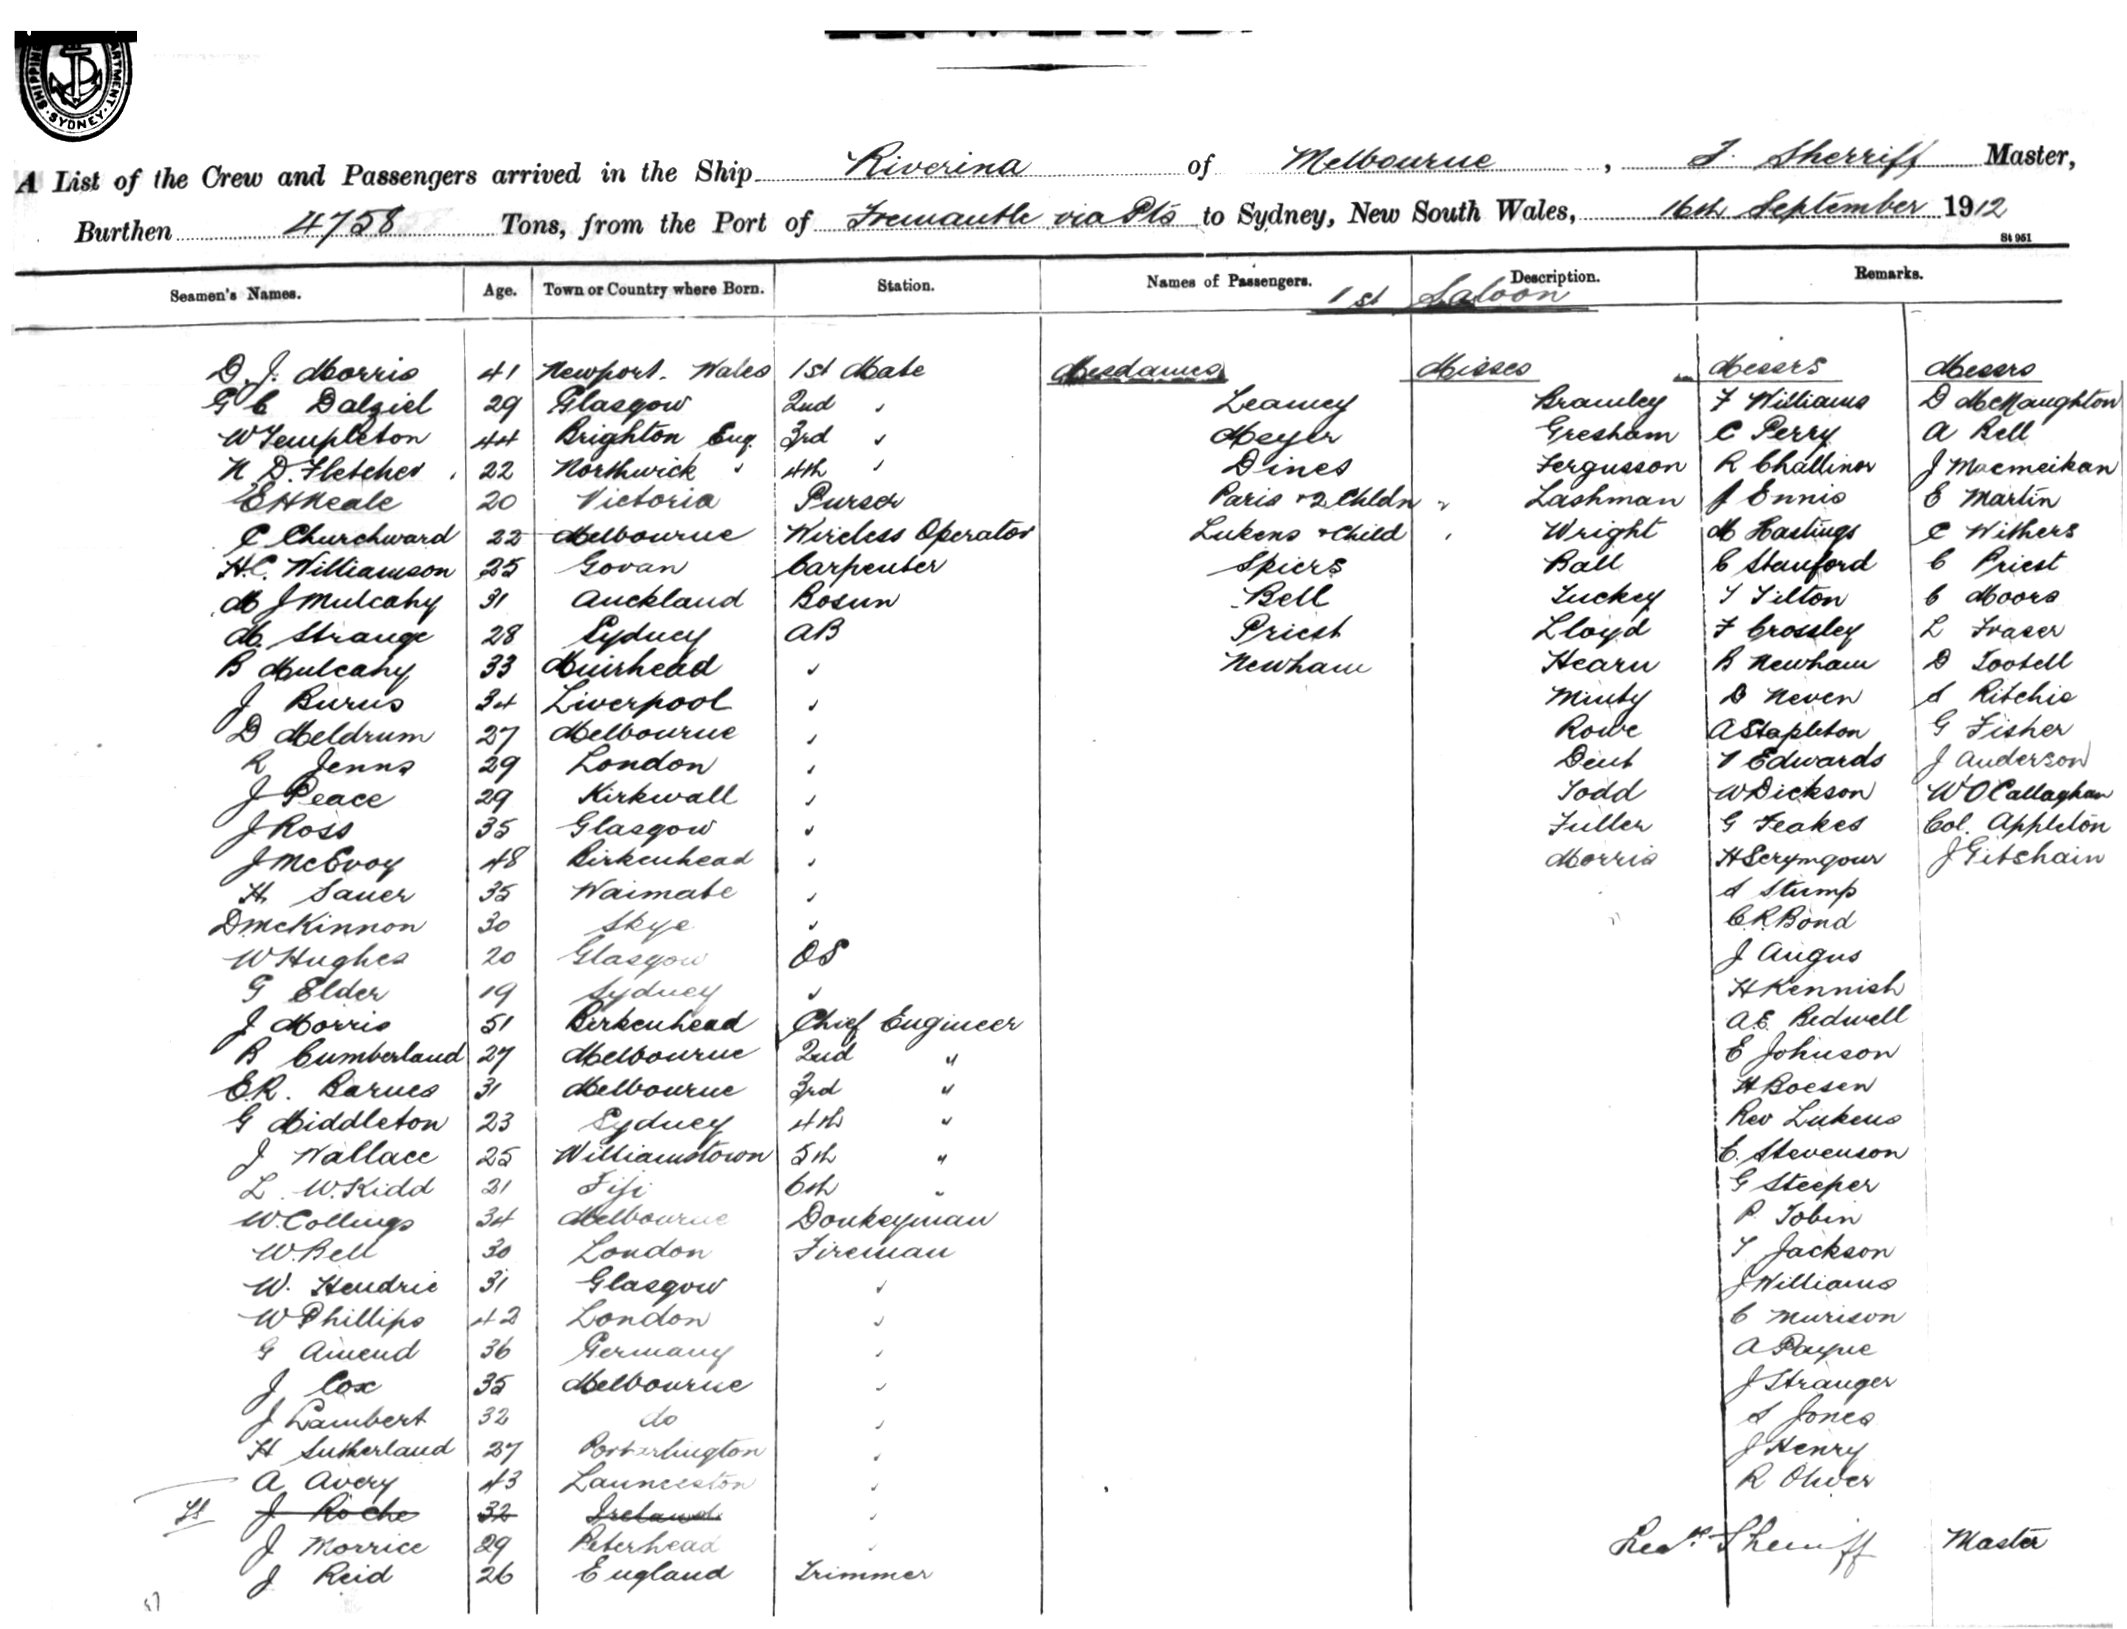 SHIPPIN ARTMENT. SYDNEY
A List of the Crew and Passengers arrived in the Ship Riverina of Melbourne, Sherriff Master,
Burthen 4758 Tons, from the Port of Fremantle via Pts to Sydney, New South Wales, 16th September 1912
St 951
Seamen's Names. Age. Town or Country where Born. Station. Names of Passengers. Description. Remarks.
1st Saloon
D. J. Morris 41 Newport. Wales 1st Mate Mesdames Misses Messrs Messrs
G C Dalziel 29 Glasgow 2nd " Leamey Bramley F Williams D McNaughton
W Templeton 44 Brighton Eng. 3rd " Meyer Gresham C Perry A Bell
N D. Fletcher 22 Northwick " 4th " Dines Fergusson R Challinor J Macmeikan
E H Neale 20 Victoria Purser Paris + 2 Chldn Lashman J Ennis E Martin
C Churchward 22 Melbourne Wireless Operator Lukens + Child Wright M Hastings C Withers
H.C. Williamson 25 Govan Carpenter Spiers Ball C Stanford C Priest
M J Mulcahy 31 Auckland Bosun Bell Tuckey T Tilton C Moors
M. Strange 28 Sydney AB Priest Lloyd F Crossley L Fraser
B Mulcahy 33 Muirhead " Newham Hearn B Newham D Tootell
J Burns 34 Liverpool " Minty D Neven S Ritchie
D Meldrum 27 Melbourne " Rowe A Stapleton G Fisher
R Jenns 29 London " Dent T Edwards J Anderson
J Peace 29 Kirkwall " Todd W Dickson W O'Callaghan
J Ross 35 Glasgow " Fuller G Feakes Col. Appleton
J McEvoy 48 Birkenhead " Morris H Scrymgour J Gitshain
H Sauer 35 Waimate " S Stump
D McKinnon 30 Skye " C.R. Bond
W Hughes 20 Glasgow OS J Angus
G Elder 19 Sydney " H Kennish
J Morris 51 Birkenhead Chief Engineer A.E. Bedwell
B Cumberland 27 Melbourne 2nd " E Johnson
E.R. Barnes 31 Melbourne 3rd " H Boesen
G Middleton 23 Sydney 4th " Rev Lukens
J Wallace 25 Williamstown 5th " E. Stevenson
L. W. Kidd 21 Fiji 6th " G Steeper
W. Collings 34 Melbourne Donkeyman P Tobin
W. Bell 30 London Fireman T Jackson
W. Hendrie 31 Glasgow " J Williams
W Phillips 42 London " C Murison
G Amend 36 Germany " A Payne
J Cox 35 Melbourne " J Stranger
J Lambert 32 do " S Jones
H Sutherland 27 Portarlington " J Henry
A Avery 43 Launceston " R Oliver
J Roche 32 Ireland "
J Morrice 29 Peterhead " Sherriff Master
J Reid 26 England Trimmer